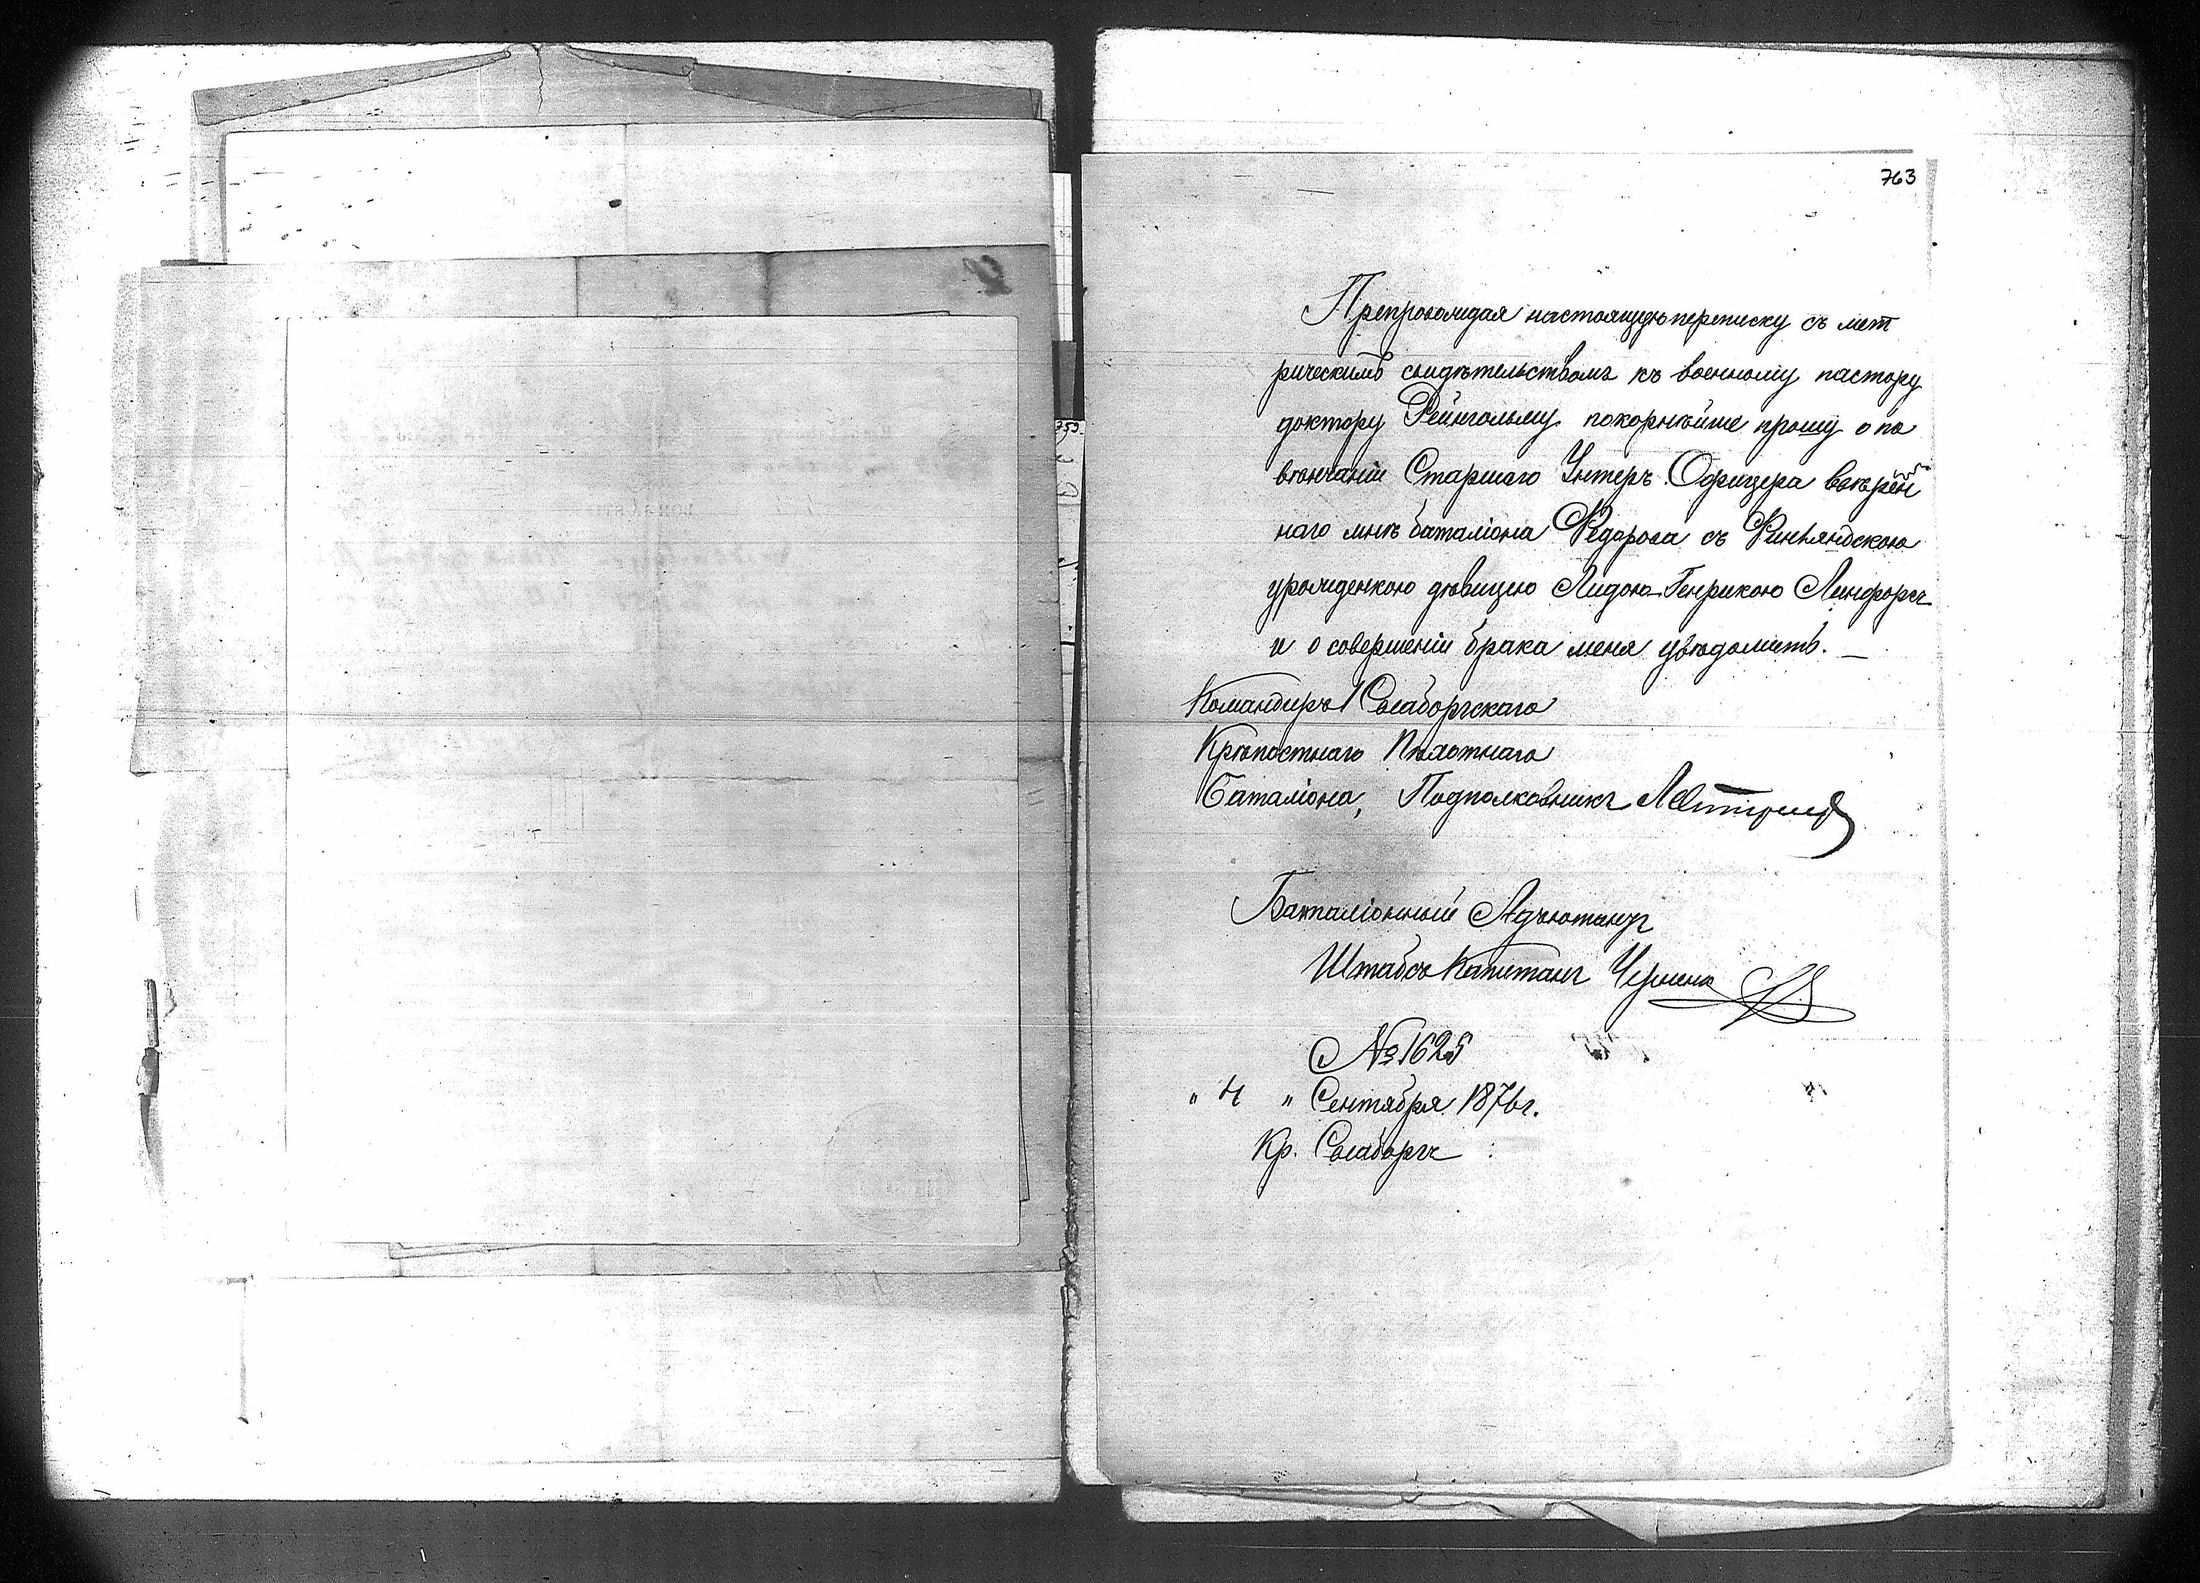 763
Препровождая настоящую переписку съ мет
рическимъ свидѣтельствомъ къ военному пастору
доктору Рейнгольму покорнѣйше прошу о по
вѣнчаніи Старшаго Унтеръ Офицера ввѣрен
наго мнѣ баталіона Ѳедорова съ Финляндскою
урожденкою дѣвицею Лидою-Генрикою Линфорсъ
и о совершеніи брака меня увѣдомить. —
Командиръ 1 Свеаборгскаго
Крѣпостнаго Пѣхотнаго
Баталіона, Подполковникъ
Баталіонный Адъютантъ
Штабсъ Капитанъ
№ 1625
" 4 " Сентября 1876 г.
Кр. Свеаборгъ